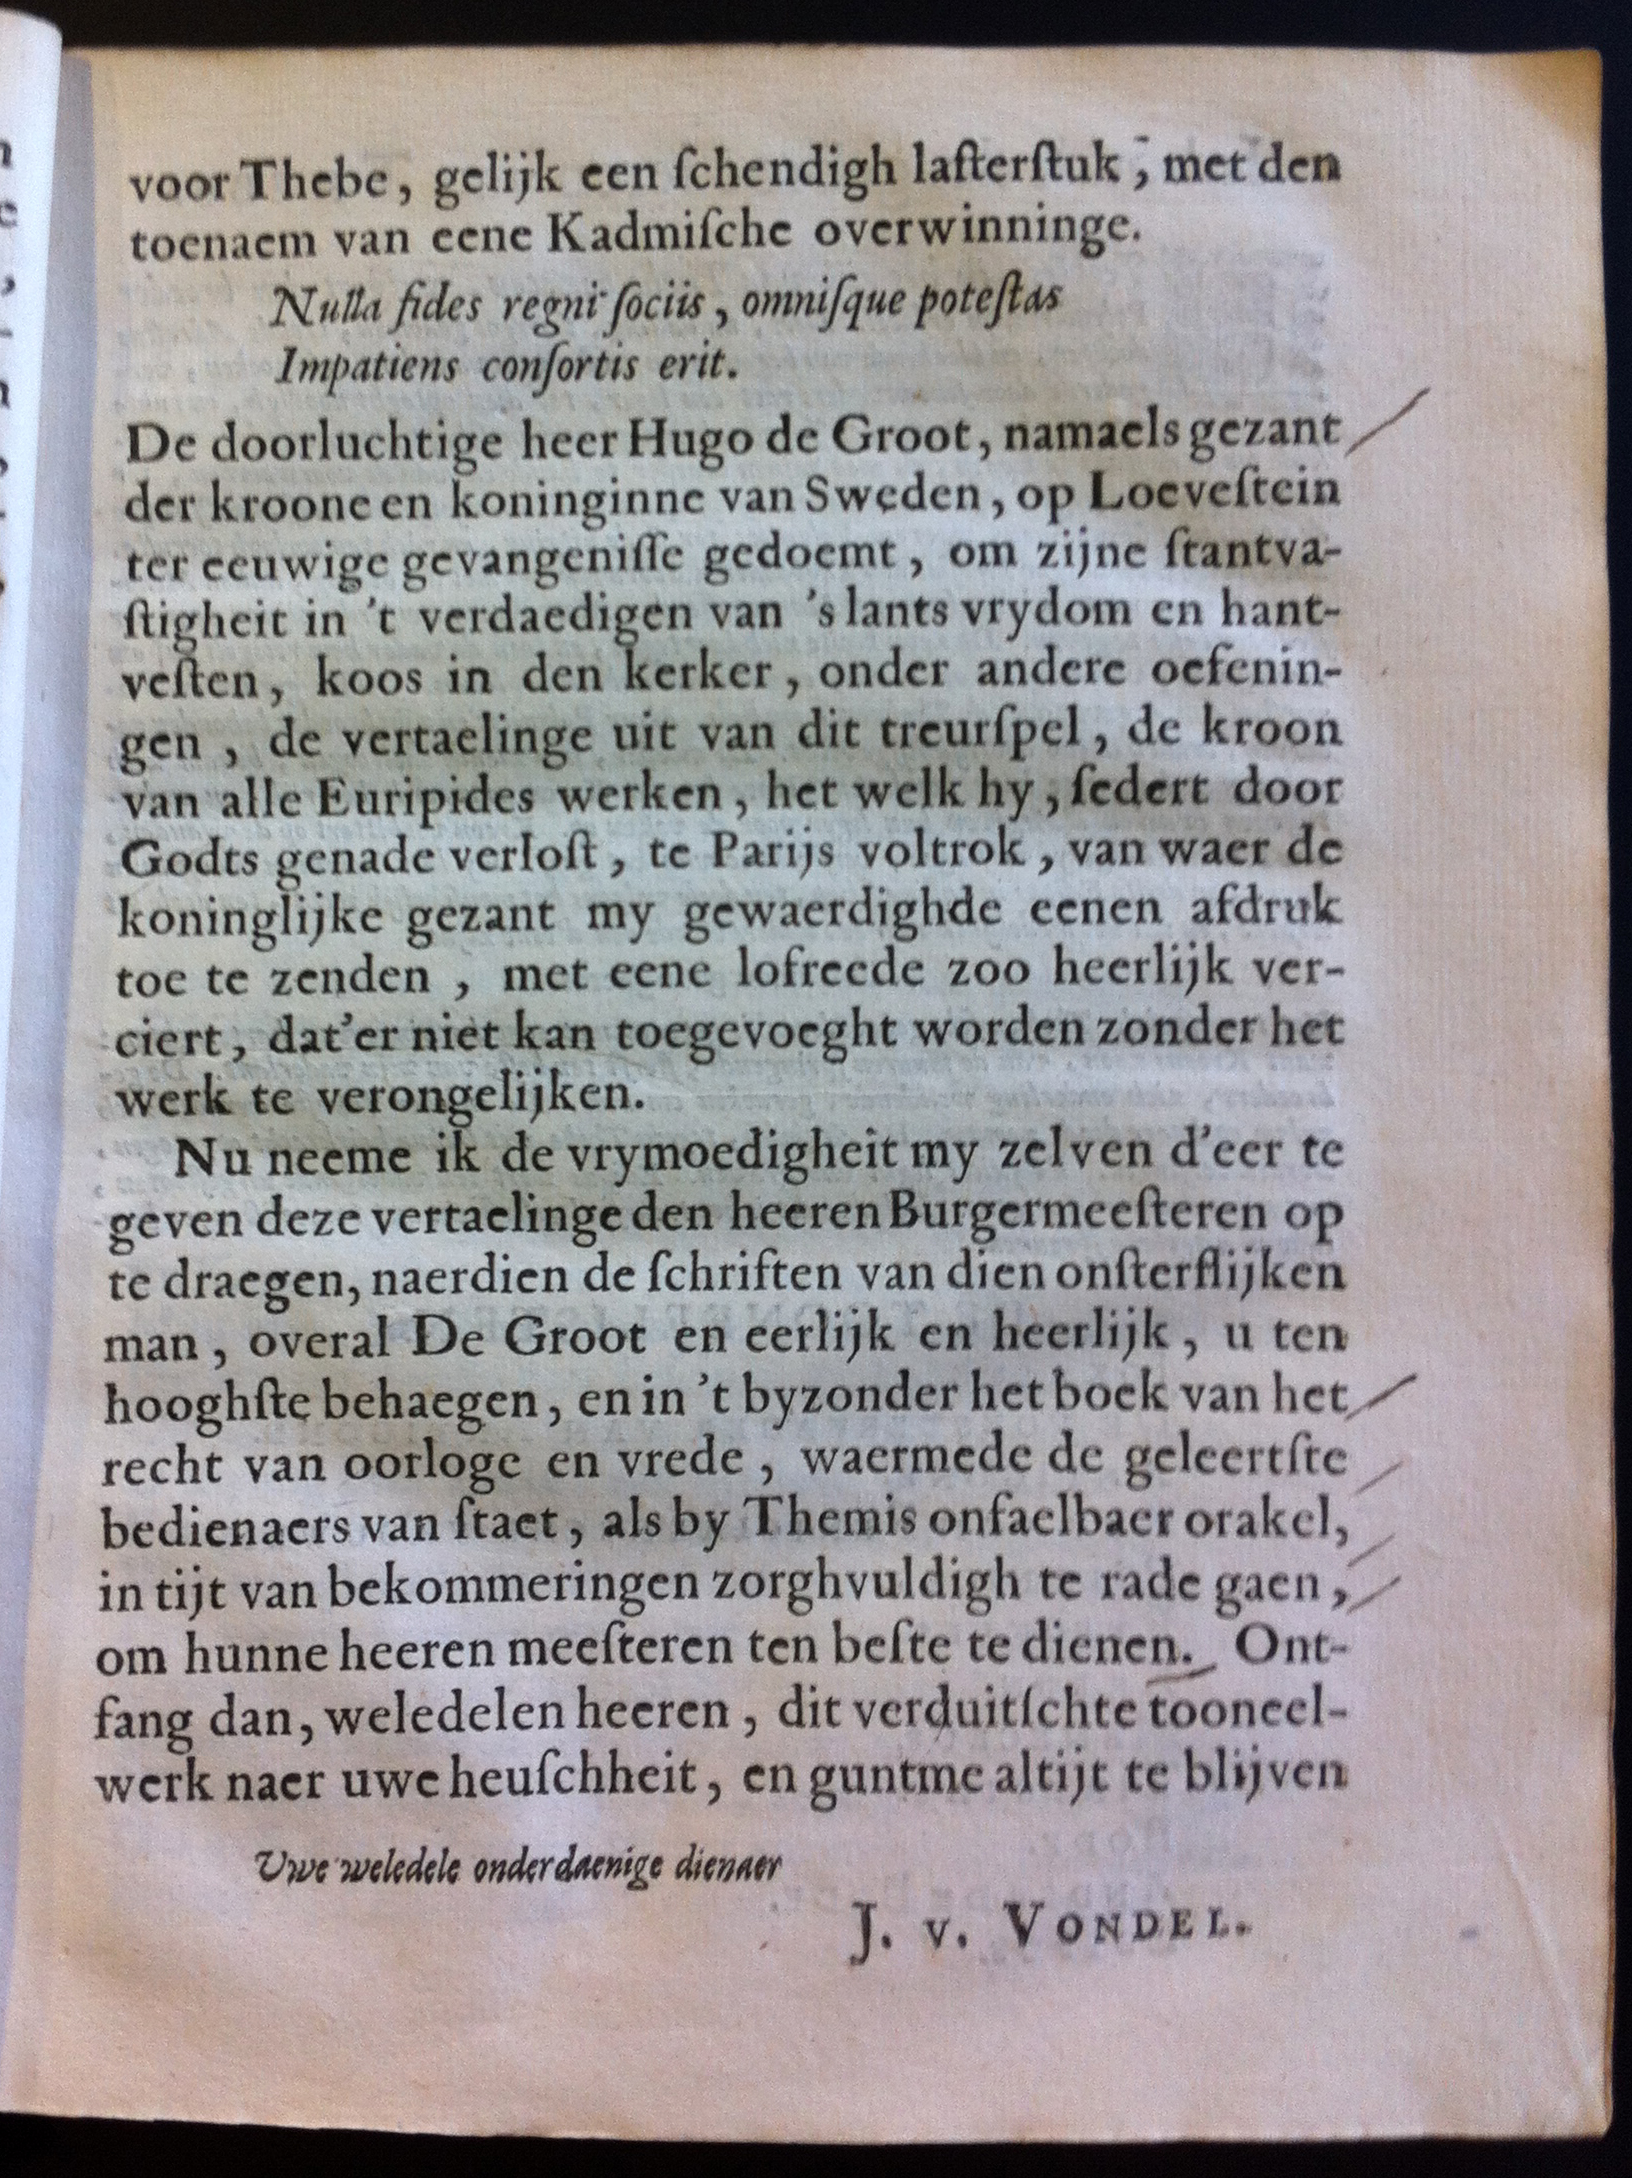 voor Thebe, gelijk een ſchendigh laſterſtuk, met den
toenaem van eene Kadmiſche overwinninge.
Nulla fides regni ſociis, omniſque poteſtas
Impatiens conſortis erit.
De doorluchtige heer Hugo de Groot, namaels gezant
der kroone en koninginne van Sweden, op Loeveſtein
ter eeuwige gevangeniſſe gedoemt, om zijne ſtantva-
ſtigheit in 't verdaedigen van 's lants vrydom en hant-
veſten, koos in den kerker, onder andere oefenin-
gen, de vertaelinge uit van dit treurſpel, de kroon
van alle Euripides werken, het welk hy, ſedert door
Godts genade verloſt, te Parijs voltrok, van waer de
koninglijke gezant my gewaerdighde eenen afdruk
toe te zenden, met eene lofreede zoo heerlijk ver-
ciert, dat'er niet kan toegevoeght worden zonder het
werk te verongelijken.
Nu neeme ik de vrymoedigheit my zelven d'eer te
geven deze vertaelinge den heeren Burgermeeſteren op
te draegen, naerdien de ſchriften van dien onſterflijken
man, overal De Groot en eerlijk en heerlijk, u ten
hooghſte behaegen, en in 't byzonder het boek van het
recht van oorloge en vrede, waermede de geleertſte
bedienaers van ſtaet, als by Themis onfaelbaer orakel,
in tijt van bekommeringen zorghvuldigh te rade gaen,
om hunne heeren meeſteren ten beſte te dienen. Ont-
fang dan, weledelen heeren, dit verduitſchte tooneel-
werk naer uwe heuſchheit, en gunt me altijt te blijven
Uwe weledele onderdaenige dienaer
J. v. VONDEL.